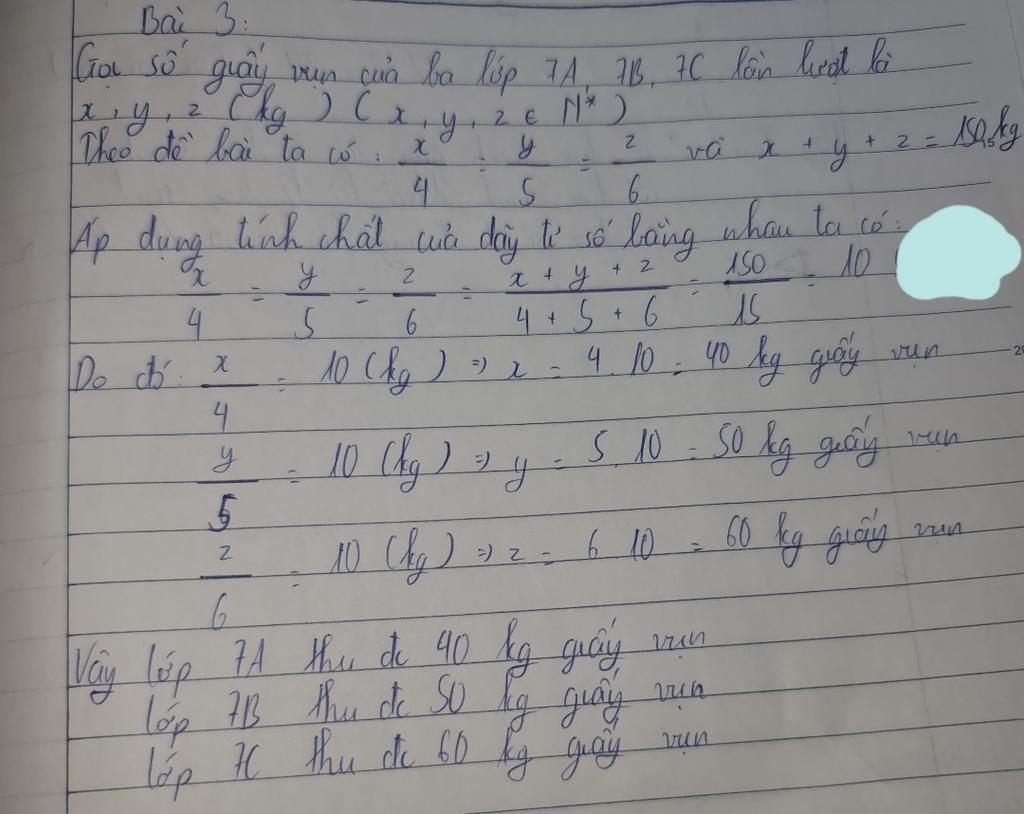 Bài 3:
Gọi số giấy vụn của ba lớp 7A, 7B, 7C lần lượt là
x, y, z (kg) (x, y, z ∈ N*)
Theo đề bài ta có: x/4 = y/5 = z/6 và x + y + z = 150kg
Áp dụng tính chất của dãy tỉ số bằng nhau ta có:
x/4 = y/5 = z/6 = x + y + z / 4 + 5 + 6 = 150/15 = 10
Do đó: x/4 = 10 (kg) => x = 4.10 = 40 kg giấy vụn
y/5 = 10 (kg) => y = 5.10 = 50 kg giấy vụn
z/6 = 10 (kg) => z = 6 10 = 60 kg giấy vụn
Vậy lớp 7A thu đc 40 kg giấy vụn
lớp 7B thu đc 50 kg giấy vụn
lớp 7C thu đc 60 kg giấy vụn